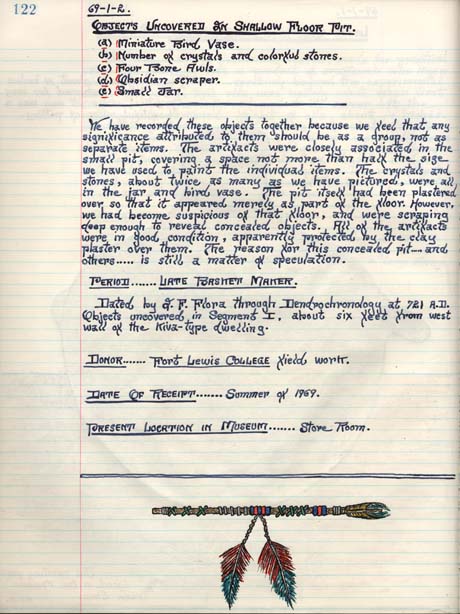 122
69-1-2.
Objects Uncovered In Shallow Floor Pit.
(a) Miniature Bird Vase.
(b) Number of crystals and colorful stones.
(c) Four Bone Awls.
(d) Obsidian scraper.
(e) Small Jar.
We have recorded these objects together because we feel that any
significance attributed to them should be as a group, not as
separate items. The artifacts were closely associated in the
small pit, covering a space not more than half the size
we have used to paint the individual items. The crystals and
stones, about twice as many as we have pictured, were all
in the jar and bird vase. The pit itself had been plastered
over so that it appeared merely as part of the floor. However,
we had become suspicious of that floor, and were scraping
deep enough to reveal concealed objects. All of the artifacts
were in good condition, apparently protected by the clay
plaster over them. The reason for this concealed pit.... and
others..... is still a matter of speculation.
Period...... Late Basket Maker.
Dated by I. F. Flora through Dendrochronology at 721 A.D.
Objects uncovered in Segment I, about six feet from west
wall of the Kiva-type dwelling.
Donor...... Fort Lewis College field work.
Date Of Receipt....... Summer of 1969.
Present Location in Museum....... Store Room.